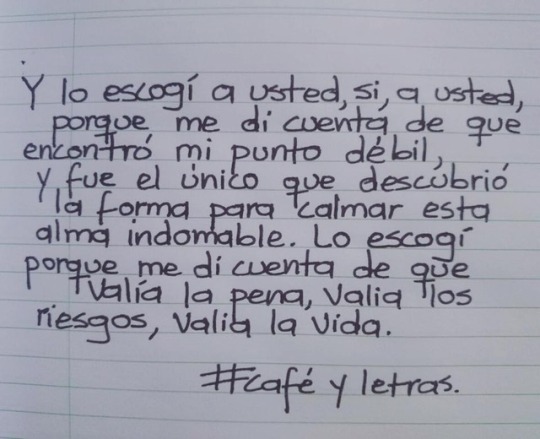 Y lo escogí a usted, si, a usted,
porque me di cuenta de que
encontró mi punto débil,
y fue el único que descubrió
la forma para calmar esta
alma indomable. Lo escogí
porque me di cuenta de que
valía la pena, valia los
riesgos, valia la vida.
#café y letras.